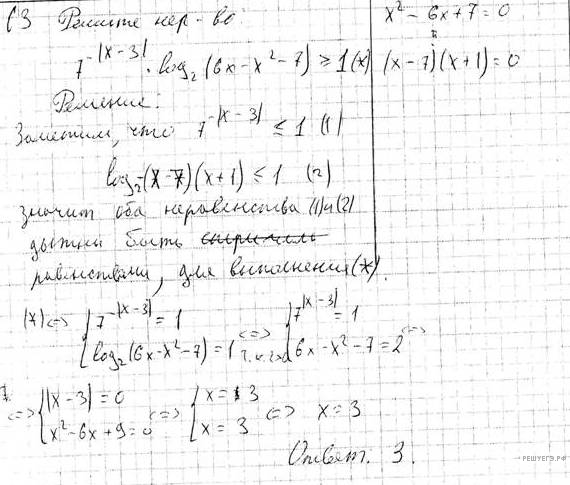 C3 Решите нер-во
7^{-|x-3|} · log₂(6x-x²-7) ≥ 1 (*)
x² - 6x + 7 = 0
(x-7)(x+1) = 0
Решение:
Заметим, что 7^{-|x-3|} ≤ 1 (1)
log₂-(x-7)(x+1) ≤ 1 (2)
значит оба неравенства (1)и(2)
должны быть
равенствами, для выполнения (*).
(*) <=> { 7^{-|x-3|} = 1 { log₂(6x-x²-7) = 1 <=> { 7^{|x-3|} = 1 { 6x-x²-7 = 2 <=>
<=> { |x-3| = 0 { x²-6x+9=0 <=> { x = 3 { x = 3 <=> x = 3
Ответ. 3.
РЕШУЕГЭ.РФ